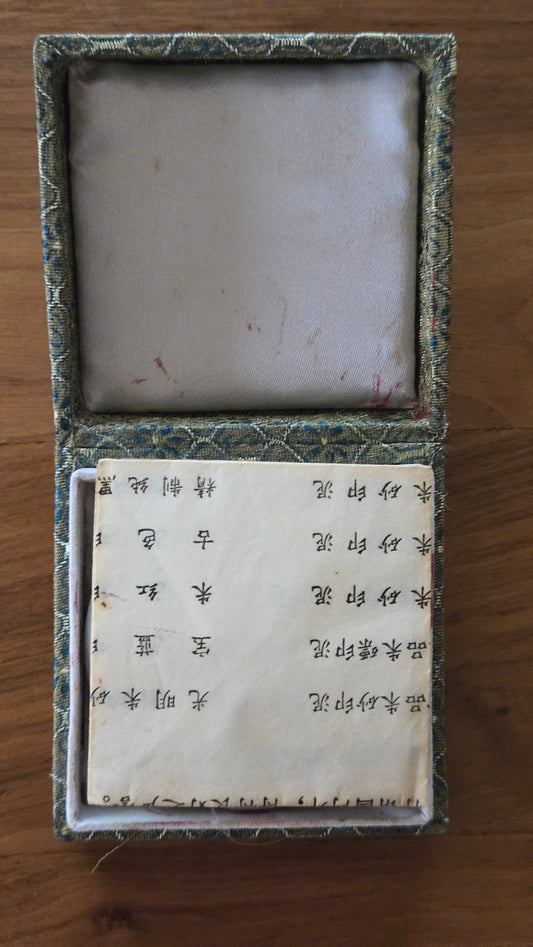 国内外，
品朱砂印泥 光明朱砂
品朱磦印泥 宝蓝
朱砂印泥 朱红
朱砂印泥 古色
朱砂印泥 精制纯黑